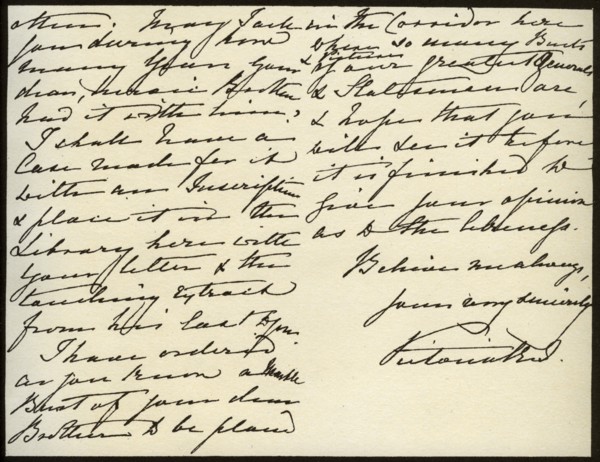 others. May I ask
you during how
many years your
dear, heroic Brother
had it with him?
I shall have a
Case made for it
with an Inscription
& place it in the
Library here with
your letter & the
touching extract
from his last to you.
I have ordered
as you know a Marble
Bust of your dear
Brother to be placed
in the Corridor here
where so many Busts
& Pictures
of our greatest Generals
& Statesmen are,
& hope that you
will see it before
it is finished to
give your opinion
as to the likeness.
Believe me always,
yours very sincerely
Victoria R.I.